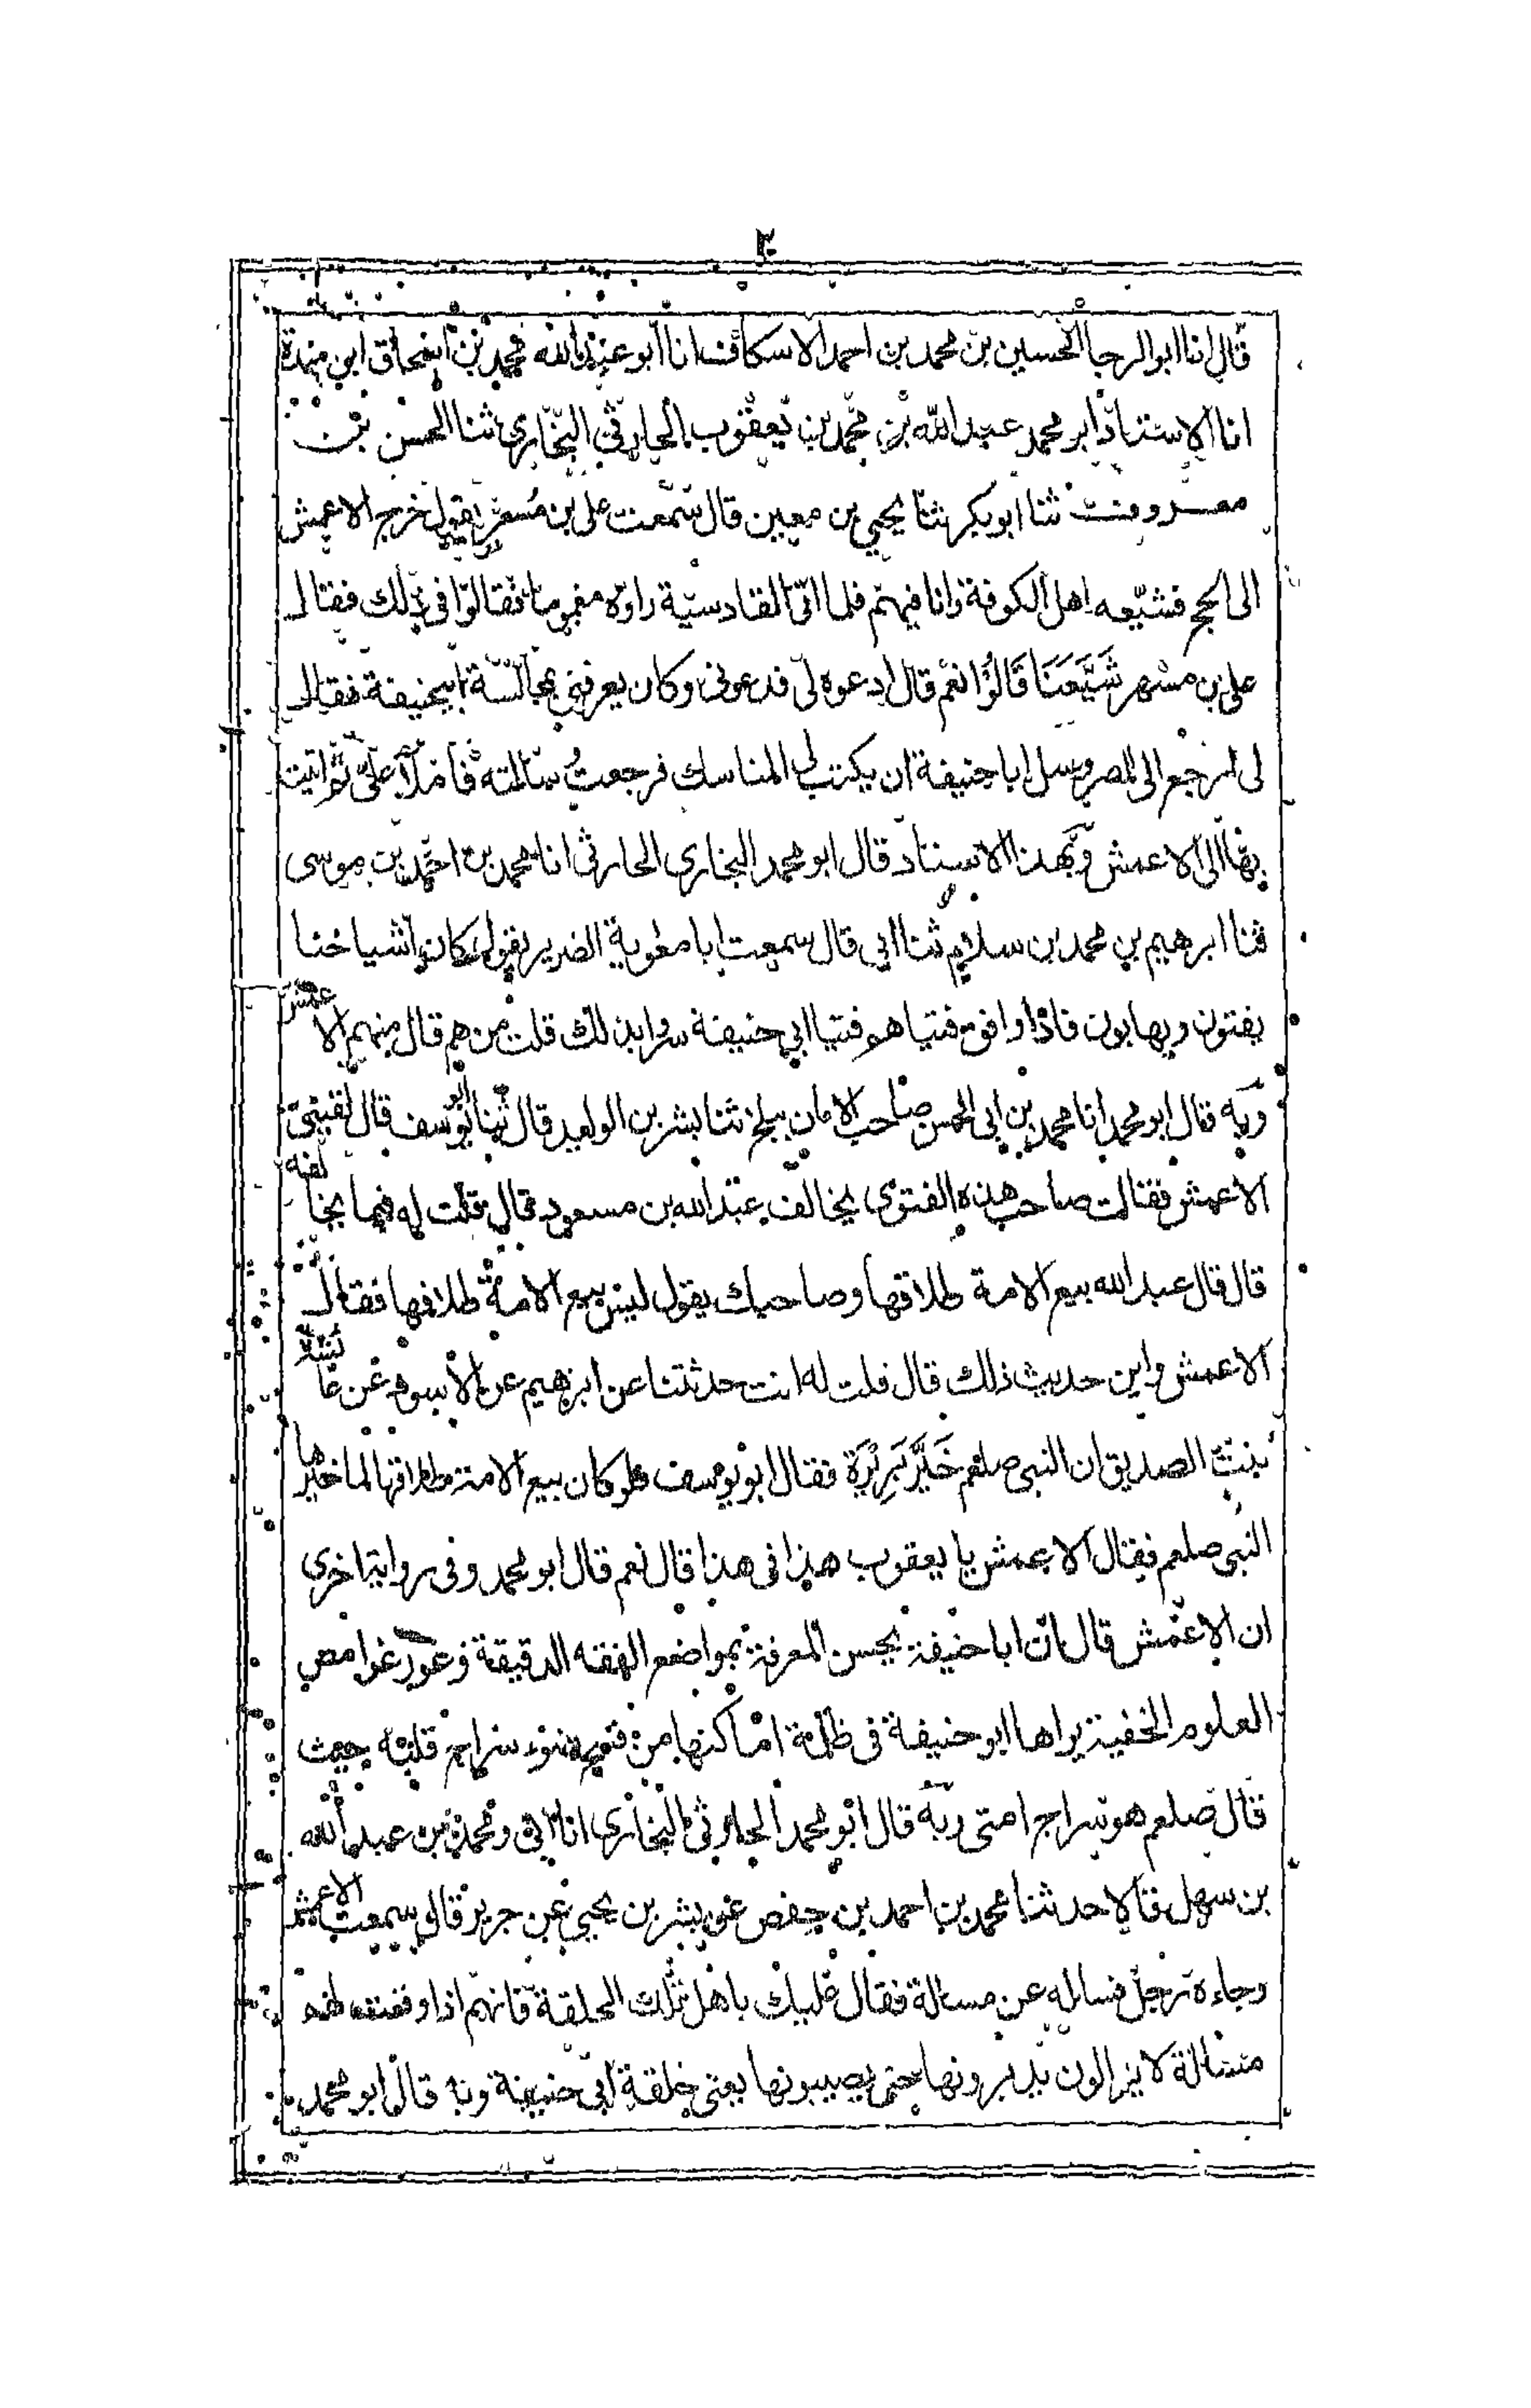 ٣
قال انا ابو الرجا الحسين بن محمد بن احمد الاسكاف انا ابو عبد الله محمد بن اسحاق ابن مندة
انا الاستاذ ابو محمد عبد الله بن محمد بن يعقوب الحارثي البخاري ثنا الحسن بن
معروف ثنا ابو بكر ثنا يحيي بن معين قال سمعت على بن مسهر يقول خرج الاعمش
الى الحج فشيعه اهل الكوفة وانا فيهم فلما اتى القادسية راوه مغموما فقالوا في ذلك فقال
على بن مسهر شَيَّعَنَا قَالُوُا نعم قال ادعوه لى فدعوني وكان يعرفني بمجالسة ابيحنيفة فقال
لى ارجع الى المصر وسل ابا حنيفة ان يكتب لى المناسك فرجعتُ سالته فاملأ علىّ ثم اتيت
بها الى الاعمش وبهذا الاسناد قال ابو محمد البخاري الحارثى انا محمد بن احمد بن موسى
ثنا ابرهيم بن محمد بن سلام ثنا ابي قال سمعت ابا معٰوية الضرير يقول كانوا اشياخنا
يفتون ويهابون فاذا وافق فتياهم فتيا ابي حنيفة سروا بذلك قلت من هم قال منهم الاعمش
وبه قال ابو محمد انا محمد بن ابي الحسن صاحب الامان ببلخ ثنا بشر بن الوليد قال ثنا ابو يوسف قال لقيني
الاعمش فقال صاحب هذه الفتوى يخالف عبد الله بن مسعود قال قلت له فيما يخالفه
قال قال عبد الله بيع الامة طلاقها وصاحبك يقول ليس بيع الامة طلاقها فقال
الاعمش واين حديث ذلك قال قلت له انت حدثتنا عن ابرهيم عن الاسود عن عائشة
بنت الصديق ان النبى صلعم خَيَّرَ بَرِيْرَة فقال ابو يوسف فلو كان بيع الامة طلاقها لما خيرها
النبى صلعم فقال الاعمش يا يعقوب هذا فى هذا قال نعم قال ابو محمد وفى رواية اخرى
ان الاعمش قال ان ابا حنيفة يحسن المعرفة بمواضع الفقه الدقيقة وغور غوامص
العلوم الخفية يراها ابو حنيفة فى ظلمة اماكنها من ضوء سراج قلبه حيث
قال صلعم هو سراج امتى وبه قال ابو محمد الحارثى البخارى انا ابي ومحمد بن عبد الله
بن سهل قالا حدثنا محمد بن احمد بن حفص عن بشر بن يحيي عن جرير قال سمعت الاعمش
وجاءه رجل فساله عن مسالة فقال عليك باهل تلك الحلقة فانهم اذا وقعت لهم
مسالة لا يزالون يديرونها حتى يصيبونها يعنى حلقة ابي حنيفة وبه قال ابو محمد